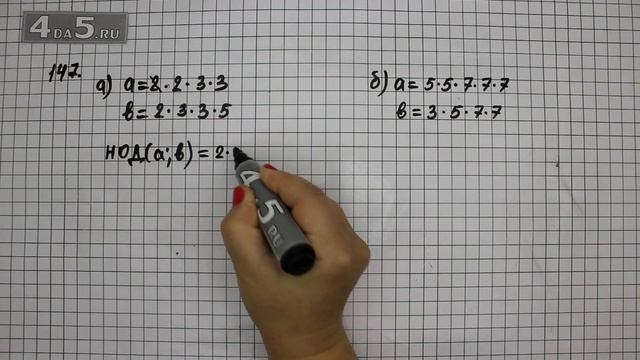 4DA5.RU
147.
а) a = 2 · 2 · 3 · 3
b = 2 · 3 · 3 · 5
НОД(a; b) = 2 ·
б) a = 5 · 5 · 7 · 7 · 7
b = 3 · 5 · 7 · 7
4 5